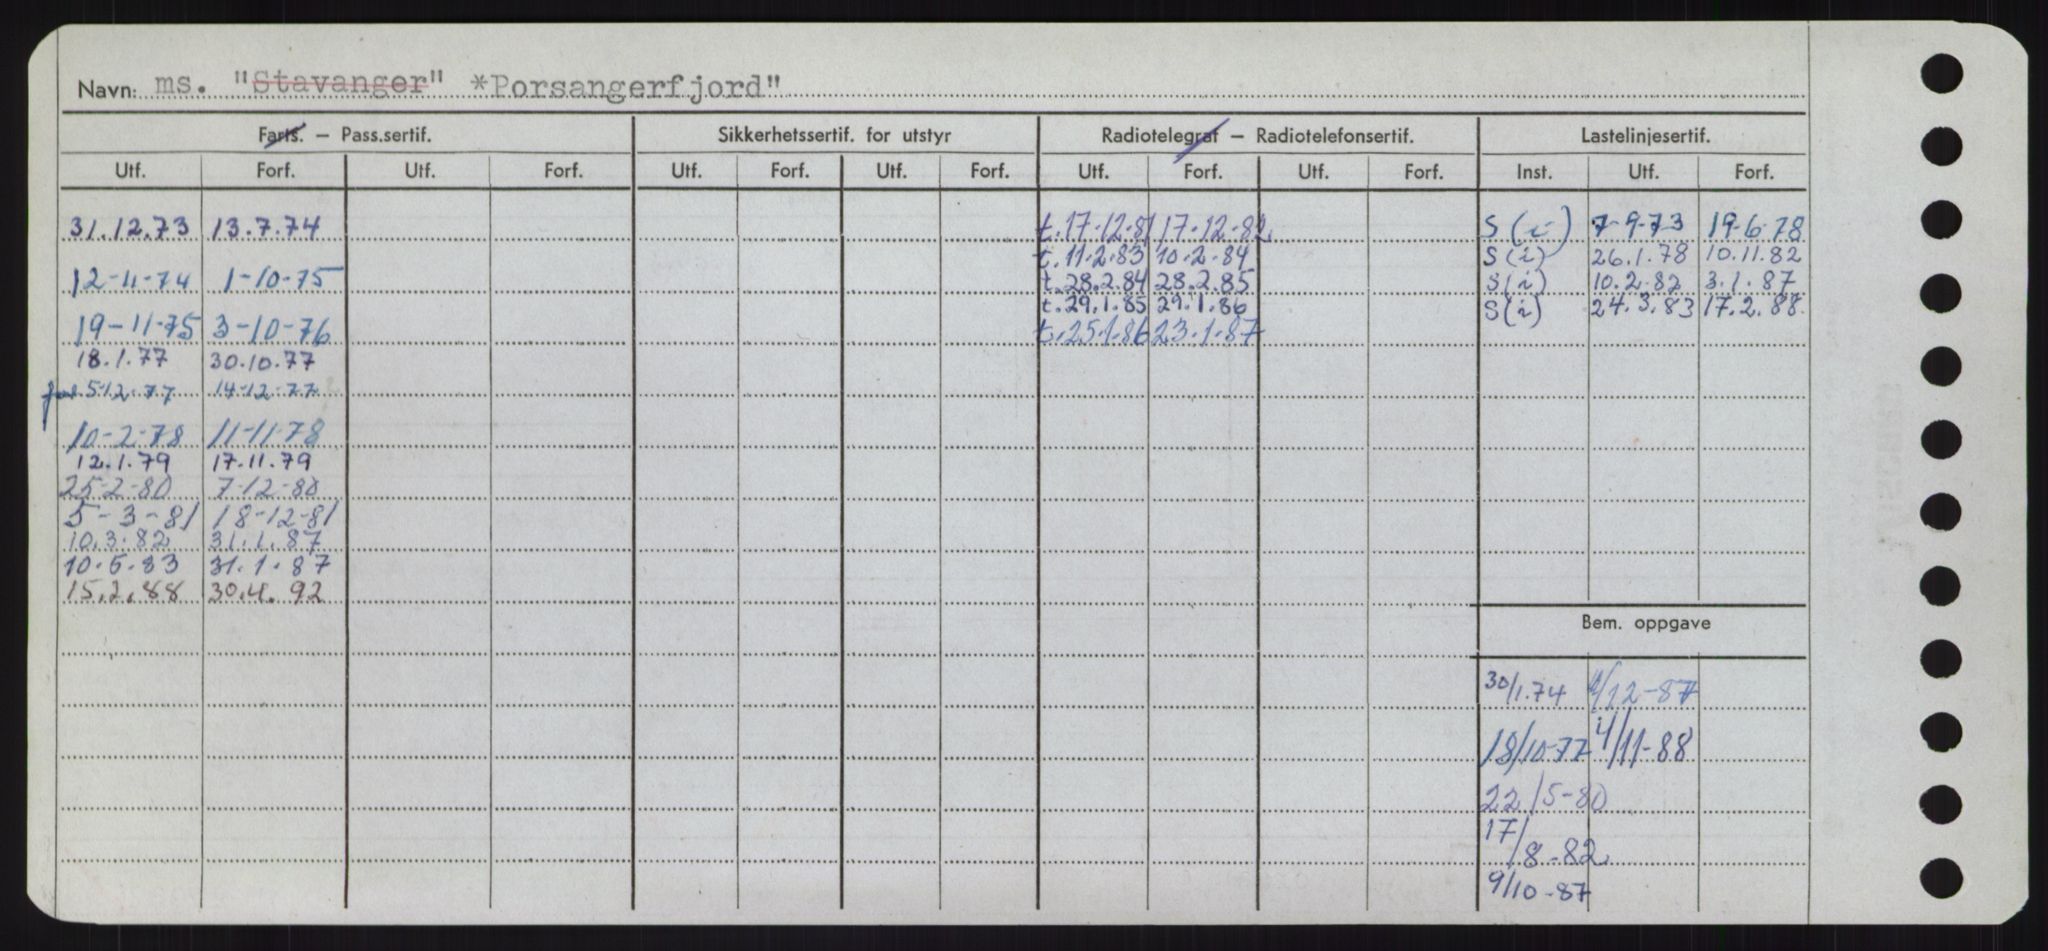 Navn: ms. "Stavanger" *Porsangerfjord"
Farts. – Pass.sertif. Sikkerhetssertif. for utstyr Radiotelegraf – Radiotelefonsertif. Lastelinjesertif.
Utf. Forf. Utf. Forf. Utf. Forf. Utf. Forf. Utf. Forf. Utf. Forf. Inst. Utf. Forf.
31.12.73 13.7.74 t.17-12-81 17-12-82 S (i) 7-9-73 19-6-78
t.11.2.83 10.2.84 S(i) 26.1.78 10.11.82
12-11-74 1-10-75 t.28.2.84 28.2.85 S(i) 10.2.82 3.1.87
t.29.1.85 29.1.86 S(i) 24.3.83 17.2.88.
19-11-75 3-10-76 t.25.1.86 23.1.87
18.1.77 30.10.77
5-12-77 14-12-77
10-2-78 11-11-78
12.1.79 17.11.79
25-2-80 7-12-80
5-3-81 18-12-81
10.3.82 31.1.87
10.5.83 31.1.87
15.2.88 30.4.92
Bem. oppgave
30/1.74 /12-87
18/10-77 4/11-88
22/5-80
17/8-82
9/10-87